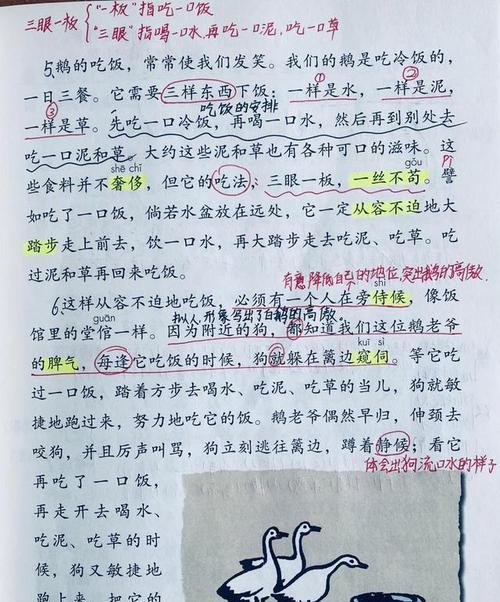 三眼一板 { "一板"指吃一口饭
"三眼"指喝一口水,再吃一口泥,吃一口草
5.鹅的吃饭，常常使我们发笑。我们的鹅是吃冷饭的，
一日三餐。它需要三样东西下饭：一样是水，一样是泥，
① ②
③ 吃饭的安排
一样是草。先吃一口冷饭，再喝一口水，然后再到别处去
吃一口泥和草。大约这些泥和草也有各种可口的滋味。这
shē chǐ gǒu pì
些食料并不奢侈，但它的吃法，三眼一板，一丝不苟。譬
如吃了一口饭，倘若水盆放在远处，它一定从容不迫地大
踏步走上前去，饮一口水，再大踏步走去吃泥、吃草。吃
过泥和草再回来吃饭。
有意降低自己的地位,突出鹅的高傲
shì
6.这样从容不迫地吃饭，必须有一个人在旁侍候，像饭
拟人,形象写出了白鹅的高傲
guān
馆里的堂倌一样。因为附近的狗，都知道我们这位鹅老爷
kuī sì
的脾气，每逢它吃饭的时候，狗就躲在篱边窥伺。等它吃
过一口饭，踏着方步去喝水、吃泥、吃草的当儿，狗就敏
捷地跑过来，努力地吃它的饭。鹅老爷偶然早归，伸颈去
咬狗，并且厉声叫骂，狗立刻逃往篱边，蹲着静候；看它
体会出狗流口水的样子
再吃了一口饭，
再走开去喝水、
吃泥、吃草的时
候，狗又敏捷地
跑上来，把它的